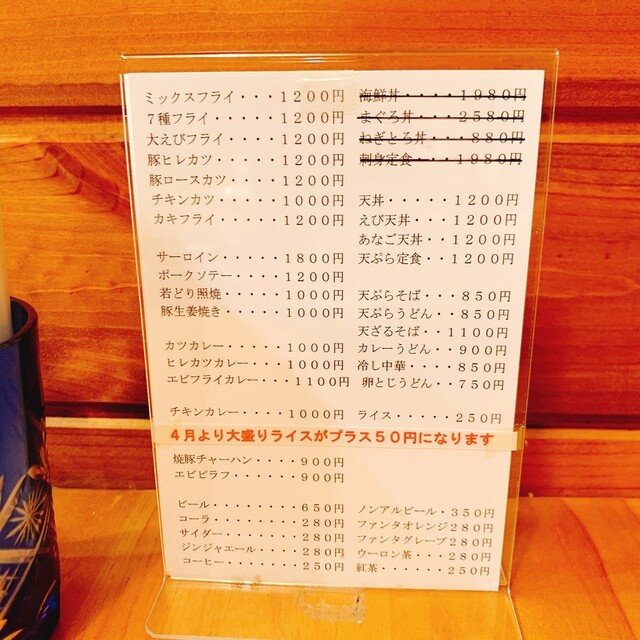 ミックスフライ・・・1200円
7種フライ・・・・・1200円
大えびフライ・・・・1200円
豚ヒレカツ・・・・・1200円
豚ロースカツ・・・・1200円
チキンカツ・・・・・1000円
カキフライ・・・・・1200円
サーロイン・・・・・1800円
ポークソテー・・・・1200円
若どり照焼・・・・・1000円
豚生姜焼き・・・・・1000円
カツカレー・・・・・1000円
ヒレカツカレー・・・1000円
エビフライカレー・・・1100円
チキンカレー・・・・1000円
海鮮丼・・・・・1980円
まぐろ丼・・・・2580円
ねぎとろ丼・・・880円
刺身定食・・・1980円
天丼・・・・・1200円
えび天丼・・・1200円
あなご天丼・・1200円
天ぷら定食・・1200円
天ぷらそば・・・850円
天ぷらうどん・・850円
天ざるそば・・1100円
カレーうどん・・900円
冷し中華・・・・850円
卵とじうどん・・750円
ライス・・・・・250円
4月より大盛りライスがプラス50円になります
焼豚チャーハン・・・・900円
エビピラフ・・・・・・900円
ビール・・・・・・・・650円
コーラ・・・・・・・・280円
サイダー・・・・・・・280円
ジンジャエール・・・・280円
コーヒー・・・・・・・250円
ノンアルビール・350円
ファンタオレンジ280円
ファンタグレープ280円
ウーロン茶・・・280円
紅茶・・・・・・・250円